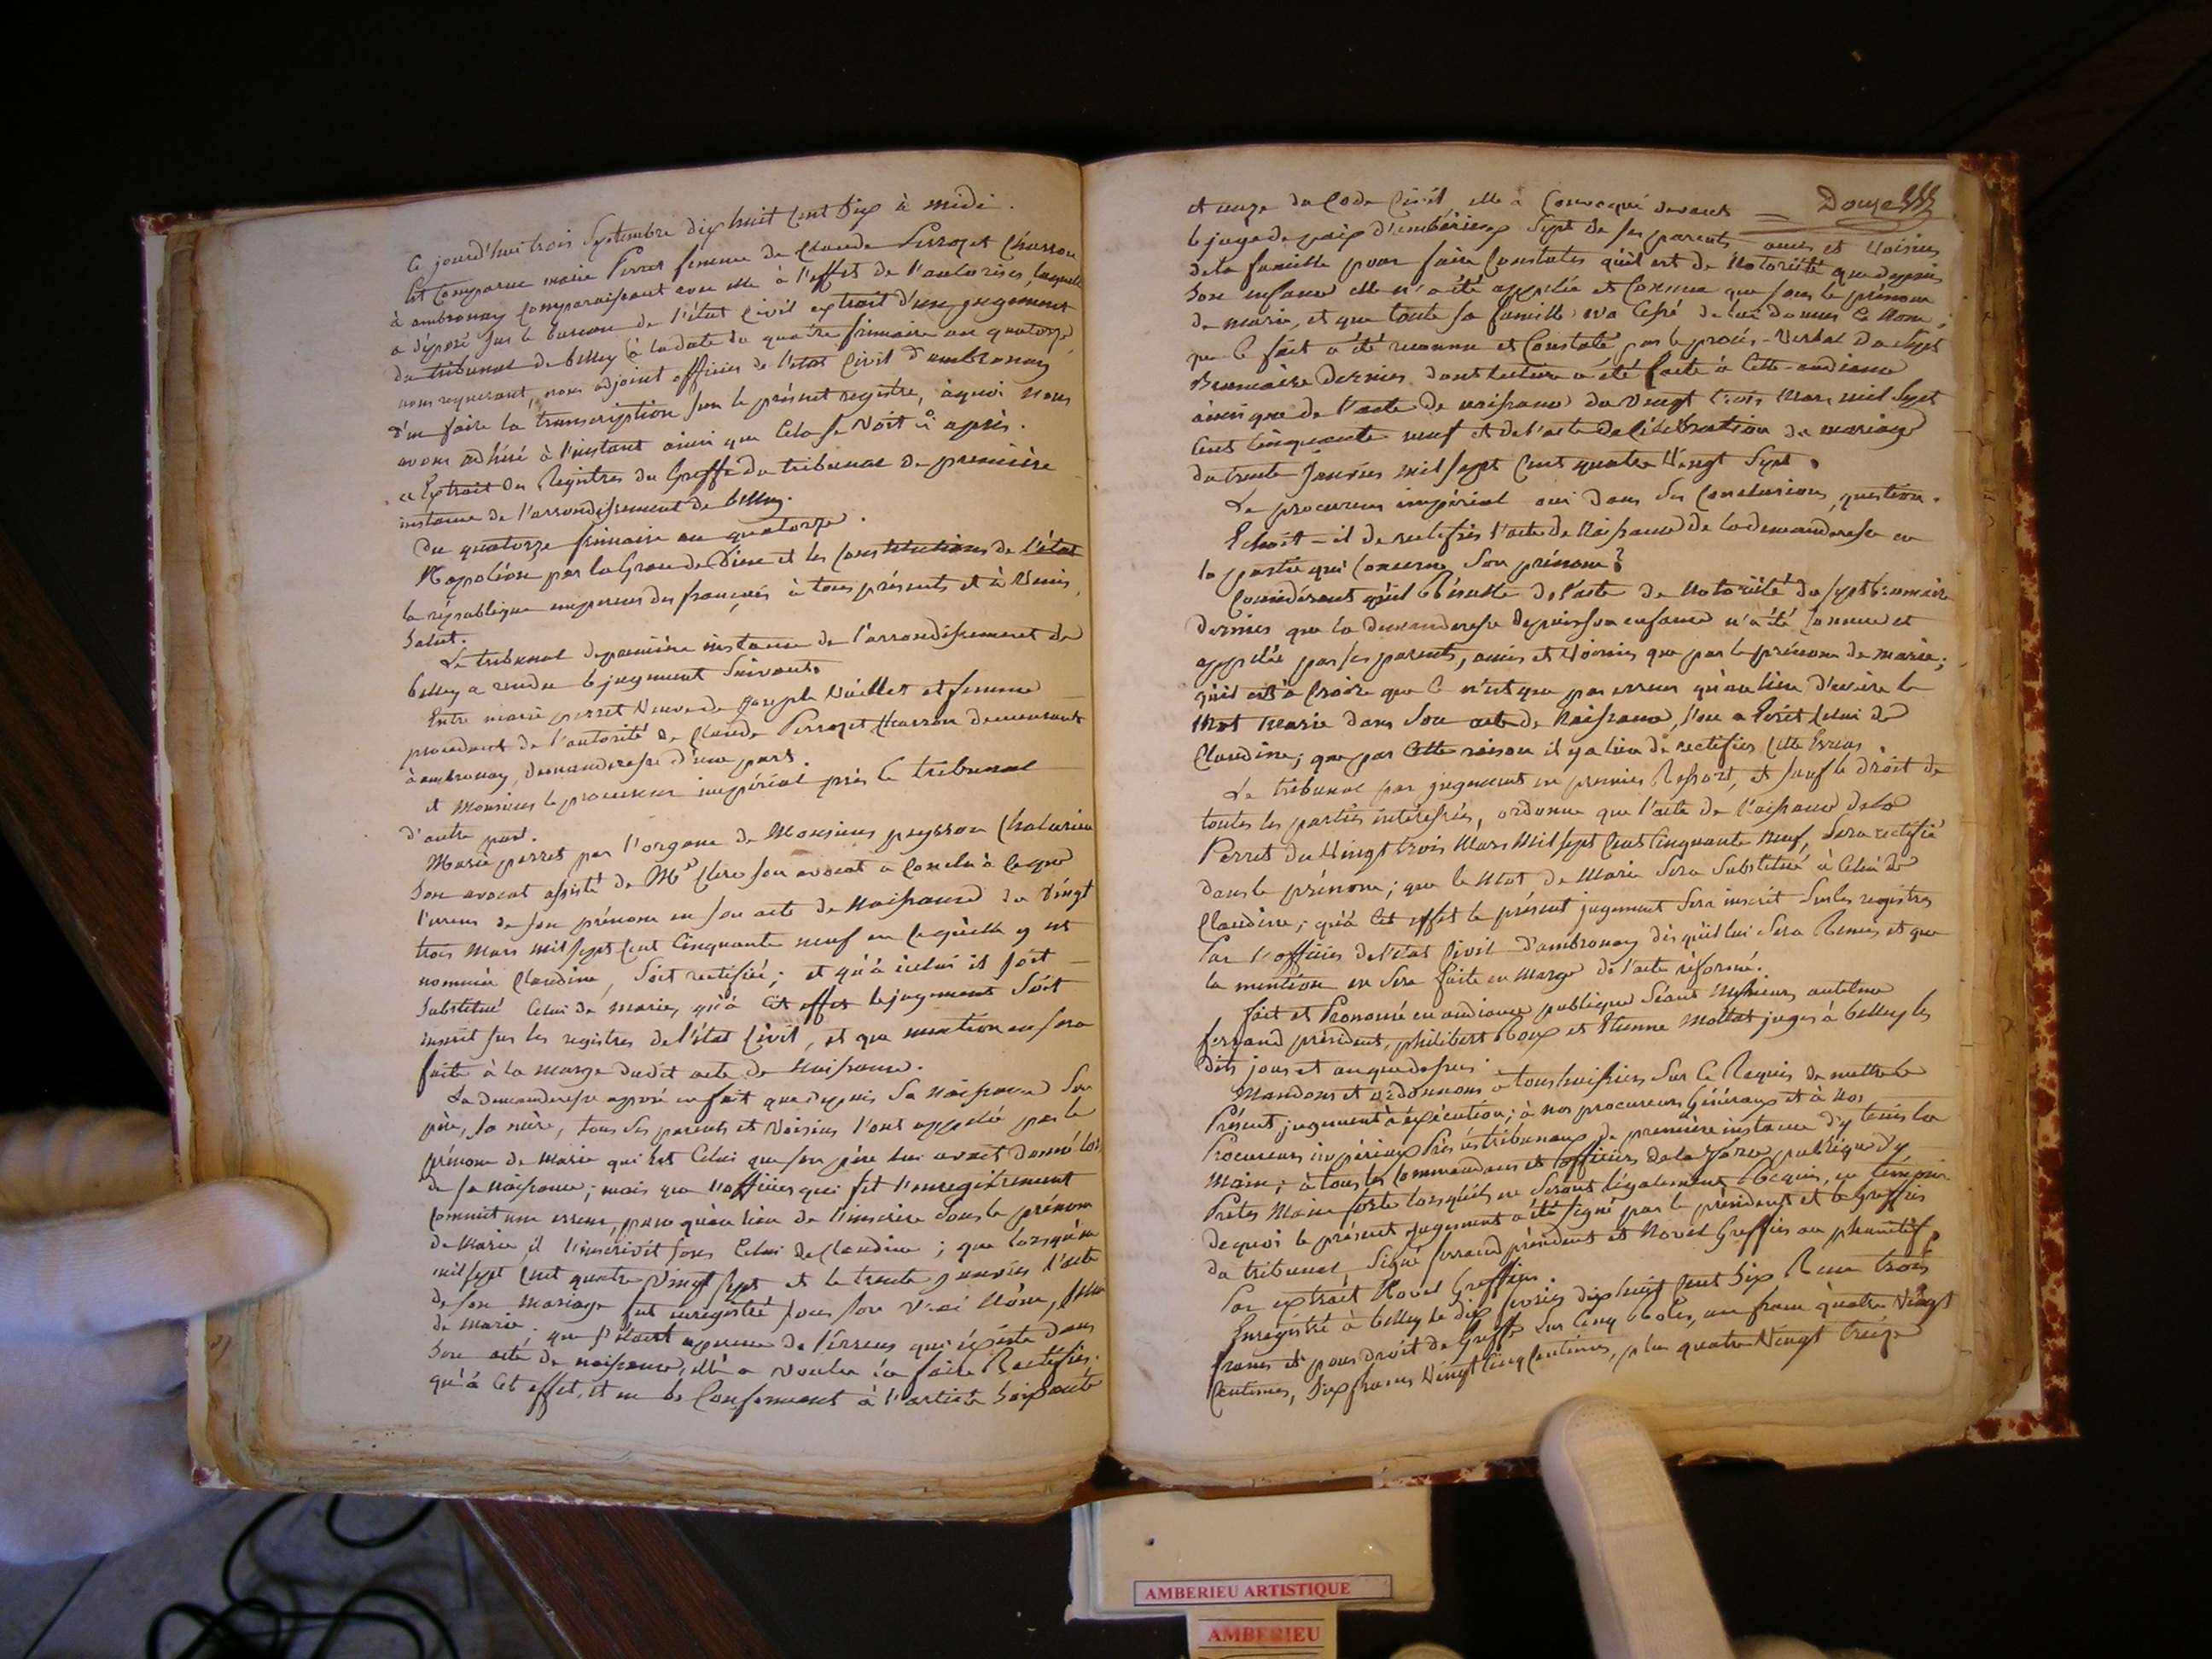 Ce jourd'hui trois Septembre dix huit Cent Six à midi.
Est Comparue marie Perret femme de Claude Perrozet Charron
à ambronay Comparaissant avec elle à l'effet de l'autoriser, laquelle
a déposé sur le bureau de l'état Civil extrait d'un jugement
du tribunal de belley à la date du quatorze frimaire an quatorze,
nous requerant, nous adjoint officier de l'état Civil d'ambronay
d'en faire la transcription sur le présent registre, àquoi nous
avons adhéré à l'instant ainsi que Cela se voit ci après.
« Extrait des Registres du Greffe du tribunal de première
instance de l'arrondissement de belley.
Du quatorze frimaire an quatorze.
Napoléon par la Grace de Dieu et les Constitutions de l'état
la république empereur des français à tous présents et à Venir,
Salut.
Le tribunal de première instance de l'arrondissement de
belley a rendu le jugement Suivant.
Entre marie perret veuve de Joseph Vuillet et femme
procedant de l'autorité de Claude Perrozet Charron demeurant
à ambronay, demanderesse d'une part.
et Monsieur le procureur impérial près le tribunal
d'autre part.
Marie perret par l'organe de Monsieur peysson
Son avocat assisté de Me Clerc son avocat a conclu à Ceque
l'erreur de son prénom en son acte de Naissance du Vingt
trois Mars mil sept Cent Cinquante neuf en lequel elle y est
nommée Claudine, Soit rectifiée; et qu'à icelui il soit
Substitué Celui de marie, qu'à Cet effet le jugement Soit
inscrit sur les registres de l'état Civil, et que mention en sera
faite à la marge dudit acte de Naissance.
La demanderesse a posé en fait que depuis Sa Naissance Son
père, Sa mère, tous Ses parents et Voisins l'ont appelée par le
prénom de marie qui est Celui que son père lui avait donné lors
de sa naissance; mais que l'officier qui fit l'enregistrement
commit une erreur, parce qu'au lieu de l'inscrire sous le prénom
de Marie il l'inscrivit sous Celui de Claudine; que lorsqu'en
mil sept Cent quatre Vingt Sept et le trente janvier l'acte
de son mariage fut enregistré sous son vrai Nom, Celui
de Marie; que s'étant apperçue de l'erreur qui existe dans
Son acte de naissance, elle a voulu la faire Rectifier;
qu'à Cet effet, et en se Conformant à l'article Soixante
Douze
et onze du Code Civil elle à Convoqué devant
le juge de paix d'ambérieux Sept de ses parents amis et voisins
de la famille pour faire Constater qu'il est de Notoriété que depuis
Son enfance elle n'a été appelée et Connue que sous le prénom
de marie, et que toute sa famille n'a Cessé de lui donner Ce Nom;
que Ce fait a été reconnu et Constaté par le procès-Verbal du Sept
Brumaire Dernier dont lecture a été faite à Cette audience
ainsi que de l'acte de naissance du Vingt trois Mars mil Sept
Cent Cinquante neuf et de l'acte de Célébration de mariage
du trente Janvier mil sept Cent quatre Vingt Sept.
Le procureur impérial oui dans Ses Conclusions, question.
Echoit-il de rectifier l'acte de Naissance de la demanderesse en
la partie qui Concerne Son prénom?
Considérant qu'il Résulte de l'acte de Notoriété du sept brumaire
dernier que la demanderesse depuis son enfance n'a été Connue et
appelée par ses parents, amis et Voisins que par le prénom de marie;
qu'il est à Croire que Ce n'est que par erreur qu'au lieu d'écrire le
Mot Marie dans Son acte de Naissance, l'on a Ecrit Celui de
Claudine; que par Cette raison il y a lieu de rectifier Cette Erreur.
Le tribunal par jugement en premier Ressort, et sauf le droit de
toutes les parties intéressées, ordonne que l'acte de Naissance de la
Perret du Vingt trois Mars Mil sept Cent Cinquante Neuf, Sera rectifié
dans le prénom; que le Mot de Marie Sera Substitué à Celui de
Claudine; qu'à Cet effet le présent jugement Sera inscrit Sur les registres
Par l'officier de l'état Civil d'ambronay dès qu'il lui Sera Remis et que
la mention en Sera faite en Marge de l'acte réformé.
fait et Prononcé en audience publique Séant Messieurs
ferrand président, philibert Roux et Etienne Mollet juges à belley les
dits jour et an que dessus
Mandons et ordonnons à tous huissiers Sur Ce Requis de mettre le
Présent jugement à exécution; à nos procureurs Généraux et à Nos
Procureurs impériaux Près les tribunaux de première instance d'y tenir la
Main; à tous les Commandans et officiers de la force publique d'y
Prêter Main forte lorsqu'ils en Seront légalement Requis, en témoin
dequoi le présent Jugement a été signé par le président et le Greffier
du tribunal Signé ferrand président et Novel Greffier au plumitif.
Par extrait Novel Greffier
Enregistré à belley le dix fevrier dix huit Cent Six Reçu trois
francs et pour droit de Greffe Sur Cinq Roles, un franc quatre Vingt
Centimes, Six francs Vingt Cinq Centimes, plus quatre Vingt treize
AMBERIEU ARTISTIQUE
AMBERIEU